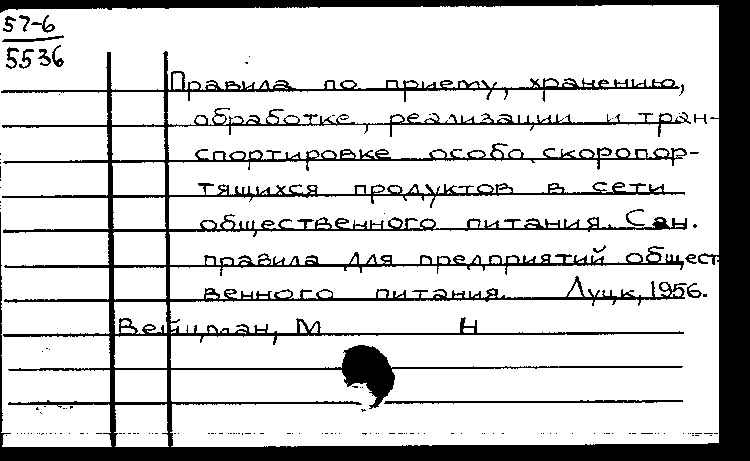 57-6
5536
Правила по приему, хранению,
обработке, реализации и тран-
спортировке особо скоропор-
тящихся продуктов в сети
общественного питания. Сан.
правила для предприятий общест
венного питания. Луцк, 1956.
Вейцман, М Н